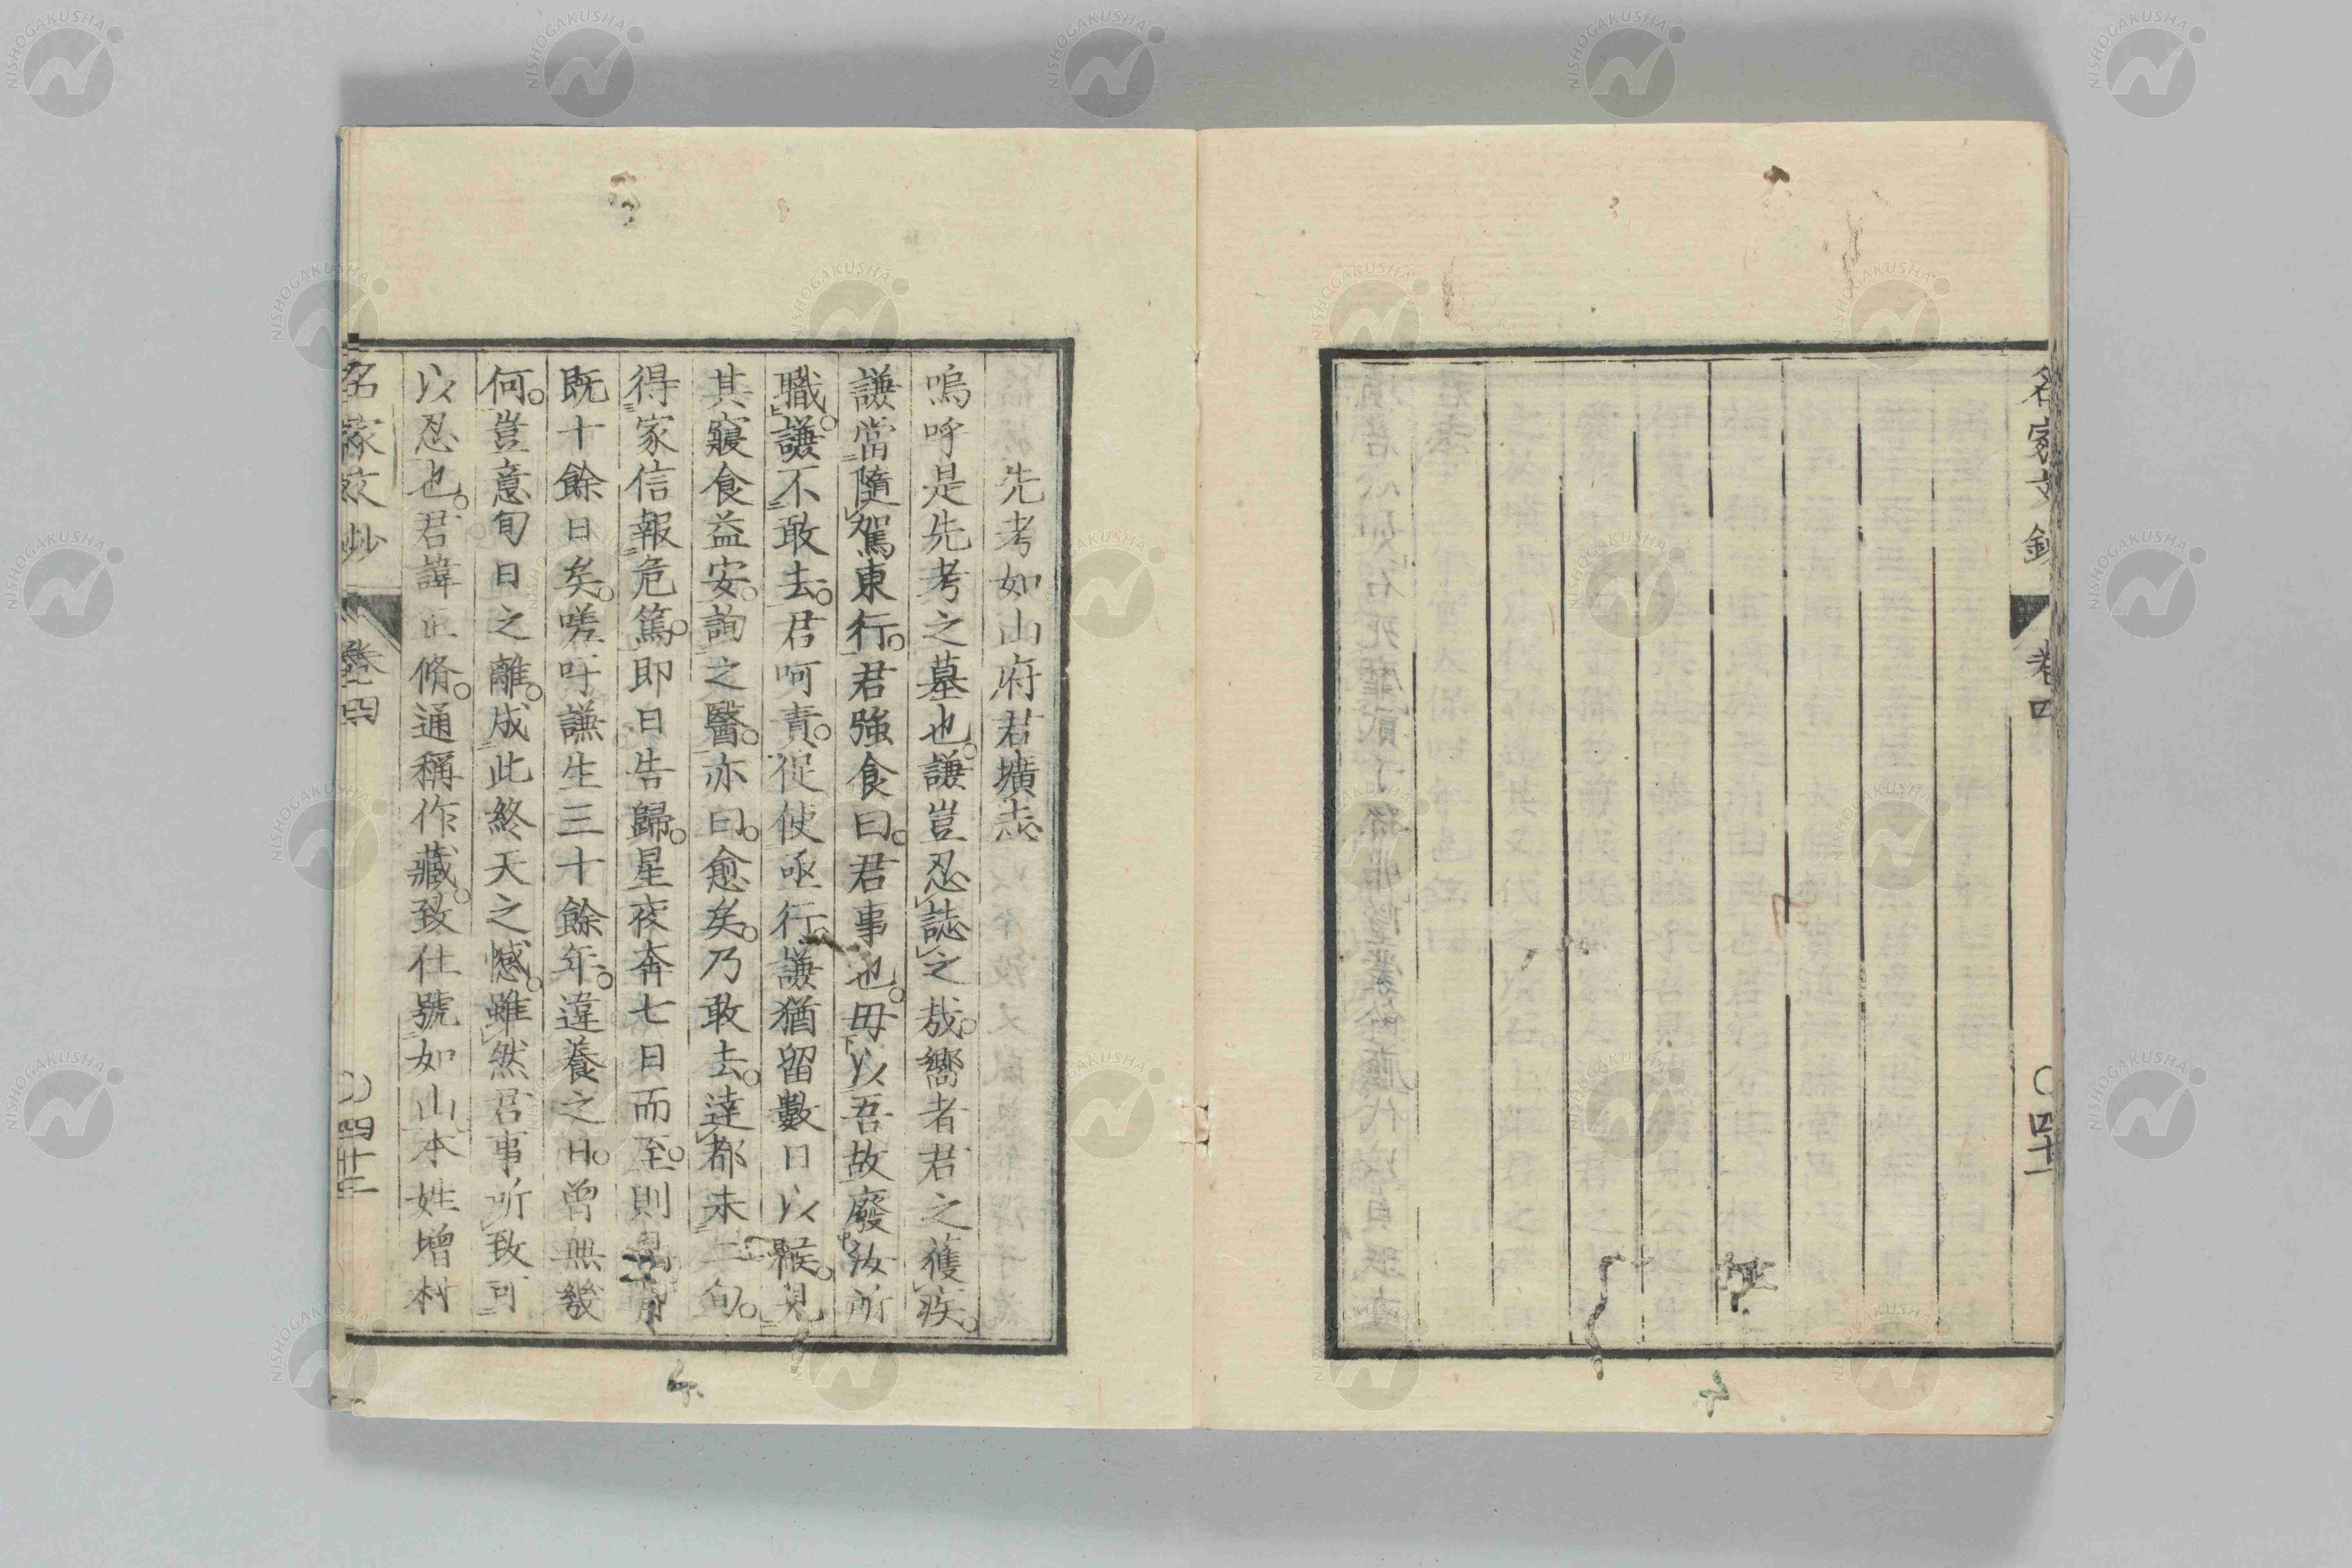 名家文鈔 卷四 ○四十二
先考如山府君壙志
嗚呼是先考之墓也。謙豈忍誌之哉。嚮者君之獲疾。
謙當隨駕東行。君強食曰。君事也。毋以吾故廢汝所
職。謙不敢去。君呵責。促使亟行。謙猶留數日以候。見
其寢食益安。詢之醫。亦曰。愈矣。乃敢去。達都未二旬。
得家信報危篤。即日告歸。星夜奔七日而至。則
既十餘日矣。嗟呼謙生三十餘年。違養之日。曾無幾
何。豈意旬日之離。成此終天之憾。雖然君事所致可
以忍也。君諱正脩。通稱作藏。致仕號如山。本姓增村
名家文鈔 卷四 ○四十三
NISHOGAKUSHA